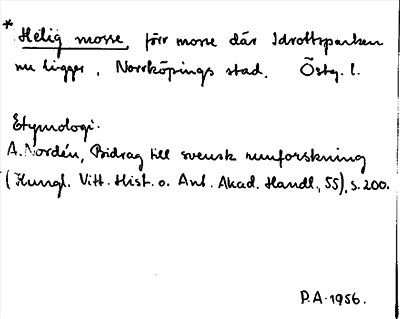 * Helig mosse, förr mosse där Idrottsparken
nu ligger, Norrköpings stad. Östg. l.
Etymologi.
A. Nordén, Bidrag till svensk runforskning
(Kungl. Vitt. Hist. o. Ant. Akad. Handl., 55), s. 200.
P.A. 1956.